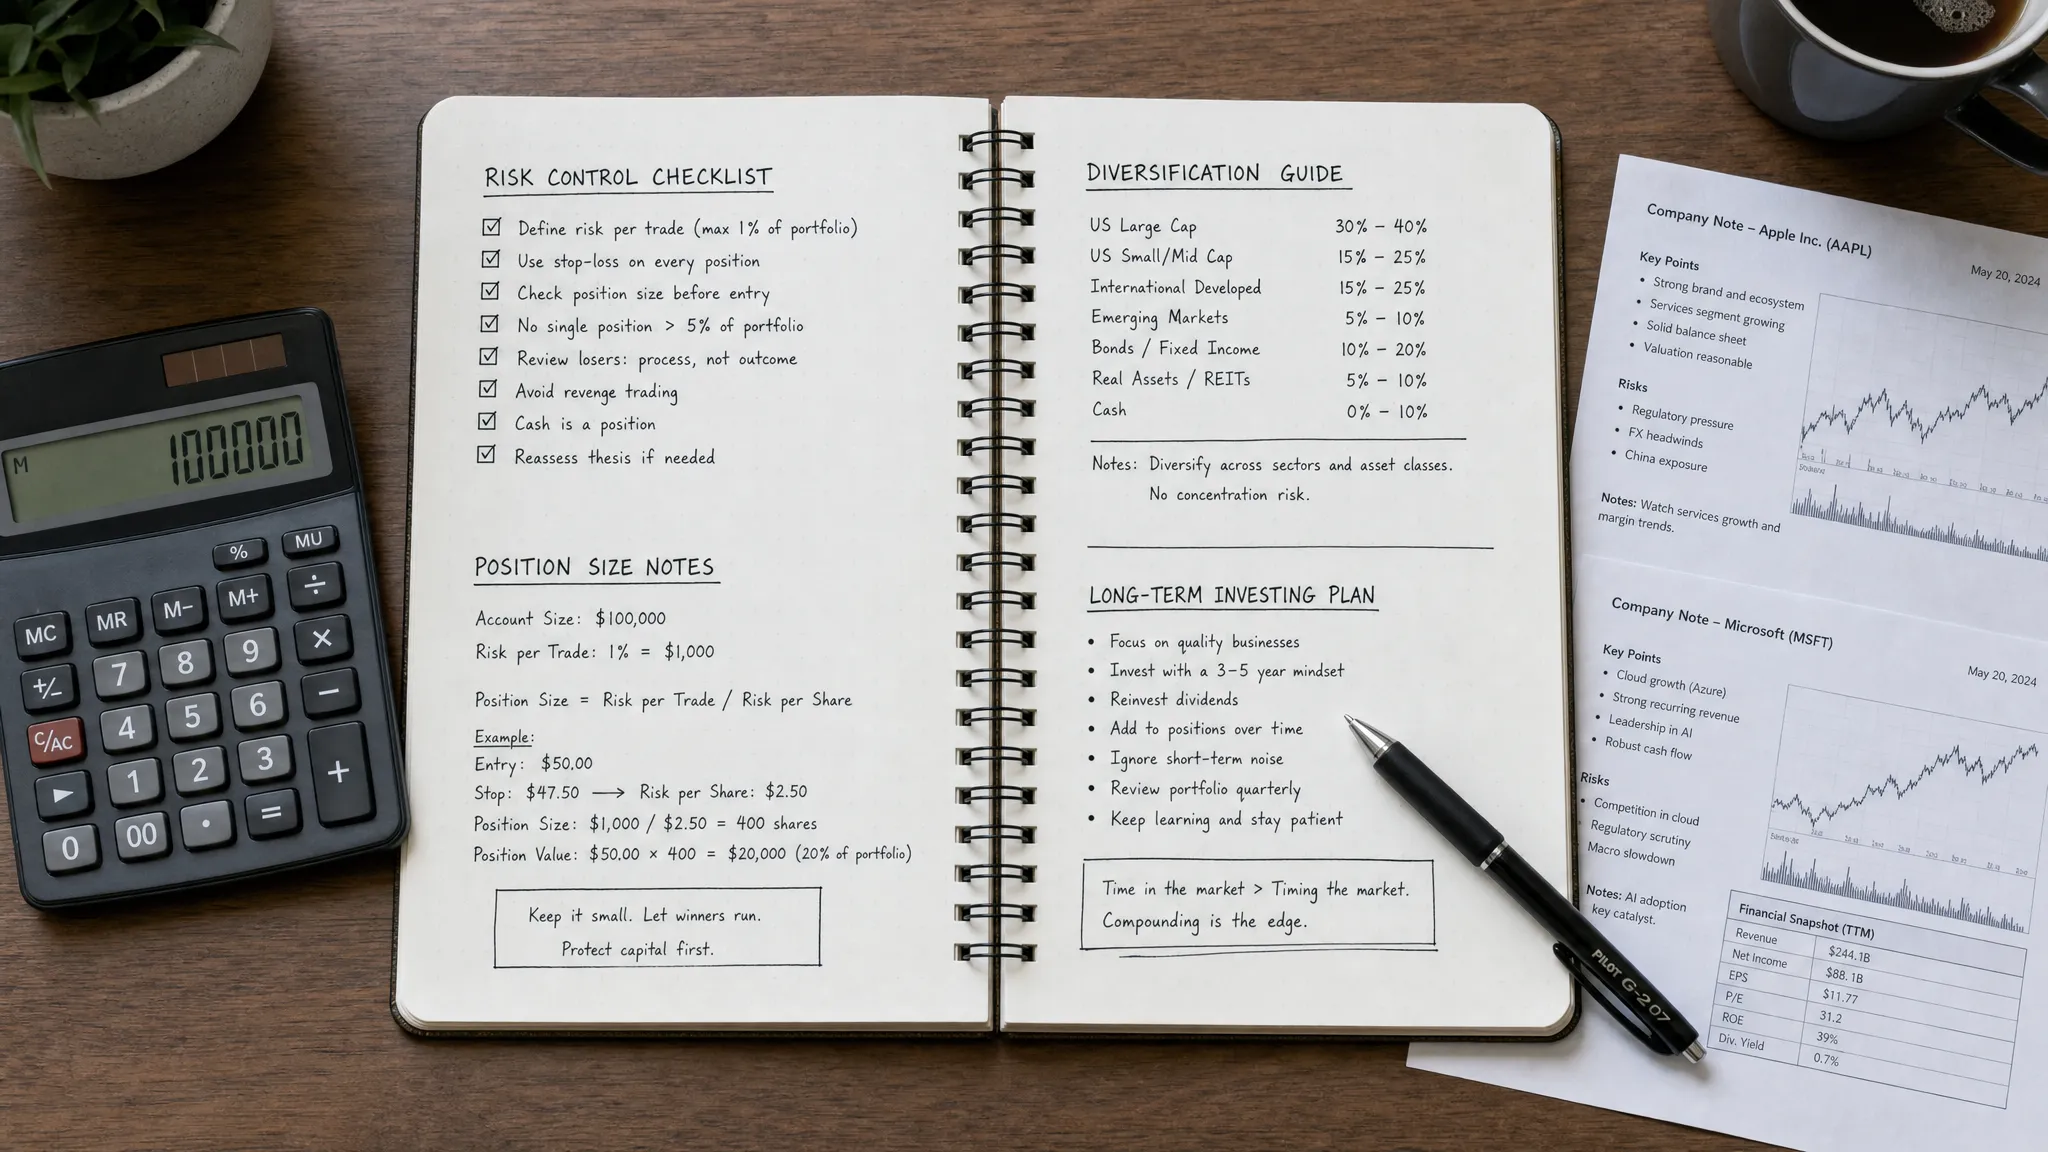 RISK CONTROL CHECKLIST
Define risk per trade (max 1% of portfolio)
Use stop-loss on every position
Check position size before entry
No single position > 5% of portfolio
Review losers: process, not outcome
Avoid revenge trading
Cash is a position
Reassess thesis if needed
POSITION SIZE NOTES
Account Size: $100,000
Risk per Trade: 1% = $1,000
Position Size = Risk per Trade / Risk per Share
Example:
Entry: $50.00
Stop: $47.50 → Risk per Share: $2.50
Position Size: $1,000 / $2.50 = 400 shares
Position Value: $50.00 × 400 = $20,000 (20% of portfolio)
Keep it small. Let winners run.
Protect capital first.
DIVERSIFICATION GUIDE
US Large Cap 30% – 40%
US Small/Mid Cap 15% – 25%
International Developed 15% – 25%
Emerging Markets 5% – 10%
Bonds / Fixed Income 10% – 20%
Real Assets / REITs 5% – 10%
Cash 0% – 10%
Notes: Diversify across sectors and asset classes.
No concentration risk.
LONG-TERM INVESTING PLAN
• Focus on quality businesses
• Invest with a 3–5 year mindset
• Reinvest dividends
• Add to positions over time
• Ignore short-term noise
• Review portfolio quarterly
• Keep learning and stay patient
Time in the market > Timing the market.
Compounding is the edge.
Company Note – Apple Inc. (AAPL)
May 20, 2024
Key Points
• Strong brand and ecosystem
• Services segment growing
• Solid balance sheet
• Valuation reasonable
Risks
• Regulatory pressure
• FX headwinds
• China exposure
Notes: Watch services growth and
margin trends.
Company Note – Microsoft (MSFT)
May 20, 2024
Key Points
• Cloud growth (Azure)
• Strong recurring revenue
• Leadership in AI
• Robust cash flow
Risks
• Competition in cloud
Regulatory scrutiny
Macro slowdown
Notes: AI adoption
key catalyst.
Financial Snapshot (TTM)
Revenue $244.1B
Net Income $88.1B
EPS $11.77
P/E 31.2
ROE 39%
Div. Yield 0.7%
PILOT G-207
M 100000
% MU
MC MR M− M+ ÷
+/− 7 8 9 ×
C/AC 4 5 6 −
▶ 1 2 3 +
0 00 · =